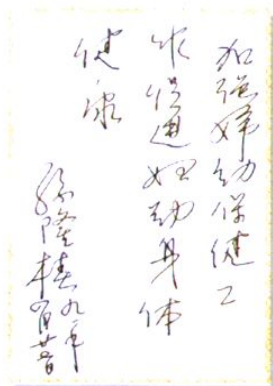 加强妇幼保健工
作促进妇幼身体
健康
孙隆椿九一年
四月廿二日